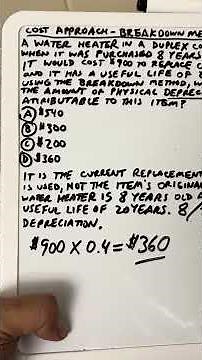 COST APPROACH - BREAKDOWN ME
A WATER HEATER IN A DUPLEX CO
WHEN IT WAS PURCHASED 8 YEARS
IT WOULD COST $900 TO REPLACE
AND IT HAS A USEFUL LIFE OF
USING THE BREAKDOWN METHOD, W
THE AMOUNT OF PHYSICAL DEPREC
ATTRIBUTABLE TO THIS ITEM?
A $540
B $300
C $200
D $360
IT IS THE CURRENT REPLACEMENT
IS USED, NOT THE ITEM'S ORIGINA
WATER HEATER IS 8 YEARS OLD A
USEFUL LIFE OF 20 YEARS. 8/
DEPRECIATION.
$900 X 0.4 = $360